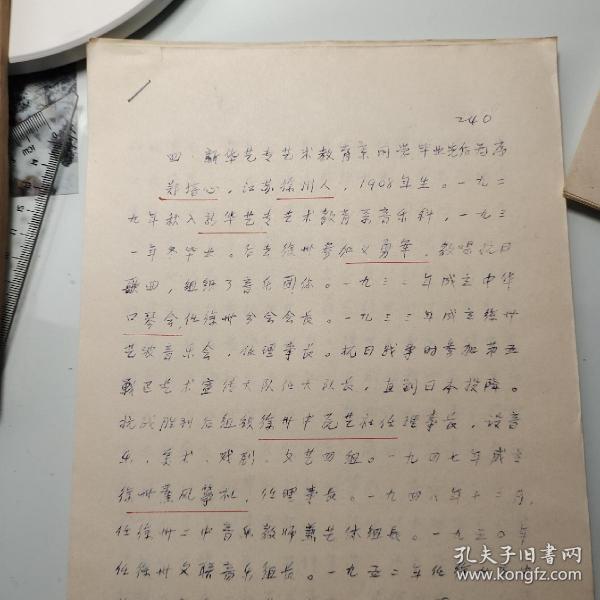 240
四、新华艺专艺术教育系同学毕业先后为序
郑培心，江苏徐州人，1908年生。一九二
九年秋入新华艺专艺术教育系音乐科，一九三
一年冬毕业。后去徐州参加义勇军，教唱抗日
歌曲，组织了音乐团体。一九三二年成立中华
口琴会，任徐州分会会长。一九三三年成立徐州
艺波音乐会，任理事长。抗日战争时参加第五
战区艺术宣传大队任大队长，直到日本投降。
抗战胜利后组织徐州中苑艺社任理事长，设音
乐、美术、戏剧、文艺四组。一九四七年成立
徐州薰风琴社，任理事长。一九四八年十二月，
任徐州二中音乐教师兼艺体组长。一九五〇年
任徐州文联音乐组长。一九五二年任
孔夫子旧书网
www.kongfz.com